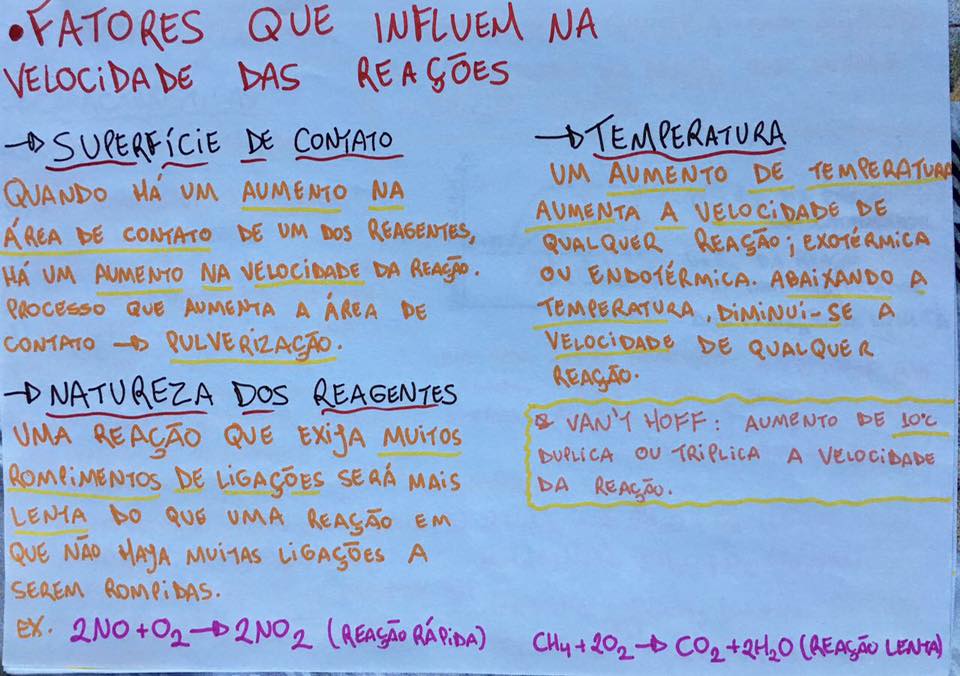 •FATORES QUE INFLUEM NA
VELOCIDADE DAS REAÇÕES
→ SUPERFÍCIE DE CONTATO
QUANDO HÁ UM AUMENTO NA
ÁREA DE CONTATO DE UM DOS REAGENTES,
HÁ UM AUMENTO NA VELOCIDADE DA REAÇÃO.
PROCESSO QUE AUMENTA A ÁREA DE
CONTATO → PULVERIZAÇÃO.
→ NATUREZA DOS REAGENTES
UMA REAÇÃO QUE EXIJA MUITOS
ROMPIMENTOS DE LIGAÇÕES SERÁ MAIS
LENTA DO QUE UMA REAÇÃO EM
QUE NÃO HAJA MUITAS LIGAÇÕES A
SEREM ROMPIDAS.
EX. 2NO + O₂ → 2NO₂ (REAÇÃO RÁPIDA)
CH₄ + 2O₂ → CO₂ + 2H₂O (REAÇÃO LENTA)
→ TEMPERATURA
UM AUMENTO DE TEMPERATURA
AUMENTA A VELOCIDADE DE
QUALQUER REAÇÃO; EXOTÉRMICA
OU ENDOTÉRMICA. ABAIXANDO A
TEMPERATURA, DIMINUI-SE A
VELOCIDADE DE QUALQUER
REAÇÃO.
VAN'T HOFF: AUMENTO DE 10°C
DUPLICA OU TRIPLICA A VELOCIDADE
DA REAÇÃO.